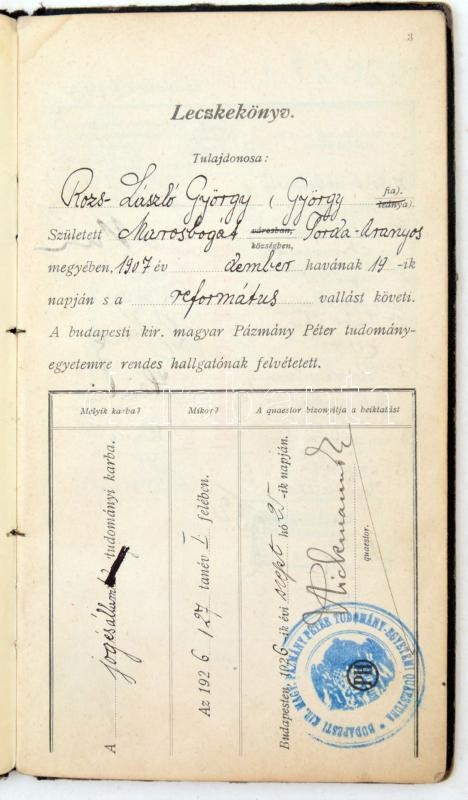 3
Leczkekönyv.
Tulajdonosa:
Rozs- László György ( György fia).
leánya).
Született Marosbogát városban, Torda-Aranyos
községben,
megyében, 1907 év dember havának 19-ik
napján s a református vallást követi.
A budapesti kir. magyar Pázmány Péter tudomány-
egyetemre rendes hallgatónak felvétetett.
Melyik karba? Mikor? A quaestor bizonyitja a beiktatást
A jogésállam tudományi karba.
Az 1926/127 tanév I felében.
Budapesten, 1926-ik évi szept hó 25-ik napján.
quaestor.
BUDAPESTI KIR. MAGY. PÁZMÁNY PÉTER TUDOMÁNY-EGYETEMI QUAESTURA